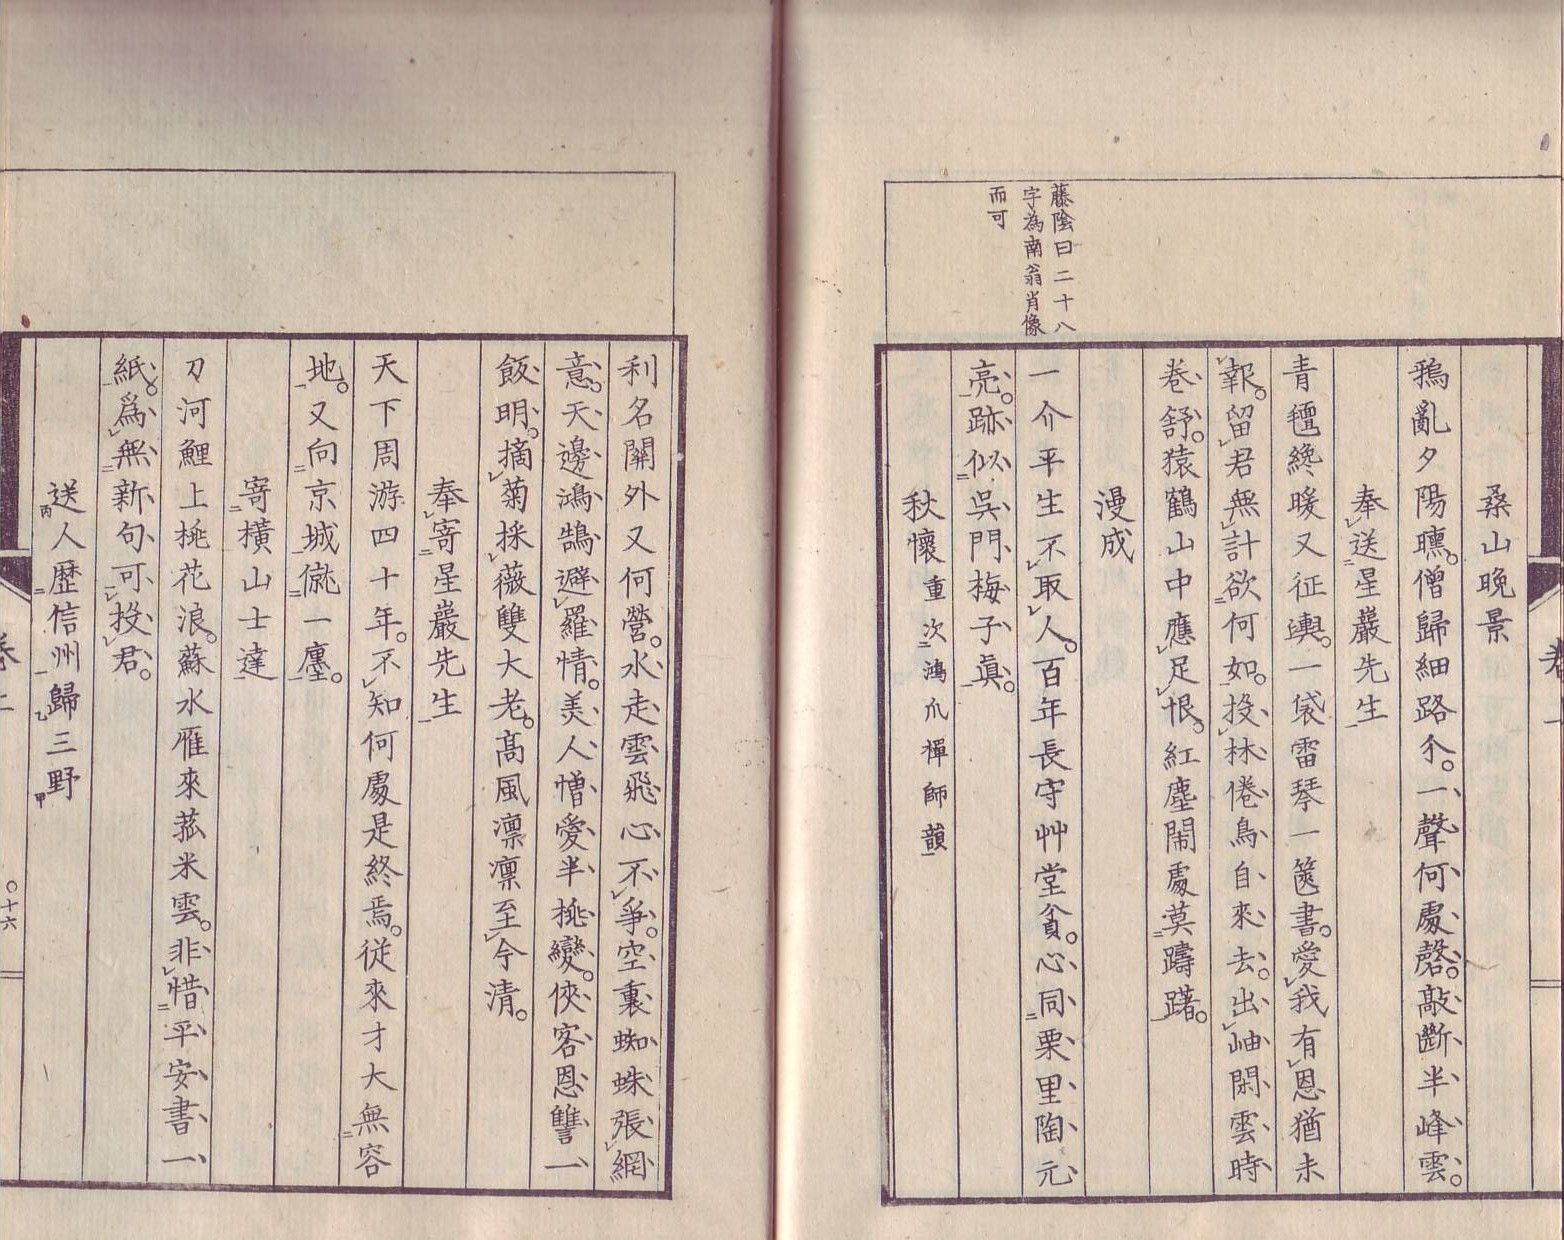 藤陰曰二十八
字為南翁肖像
而可
桑山晚景
鴉亂夕陽曛。僧歸細路分。一聲何處磬。敲斷半峰雲。
奉送星巖先生
青氊纔暖又征輿。一袋雷琴一篋書。愛我有恩猶未
報。留君無計欲何如。投林倦鳥自來去。出岫閑雲時
卷舒。猿鶴山中應足恨。紅塵鬧處莫躊躇。
漫成
一介平生不取人。百年長守艸堂貧。心同栗里陶元
亮。跡似吳門梅子眞。
秋懷重次鴻爪禪師韻
利名關外又何營。水走雲飛心不爭。空裏蜘蛛張網
意。天邊鴻鵠避羅情。美人憎愛半挑變。俠客恩讐一
飯明。摘菊採薇雙大老。高風凛凛至今清。
奉寄星巖先生
天下周游四十年。不知何處是終焉。從來才大無容
地。又向京城僦一廛。
寄橫山士達
刀河鯉上桃花浪。蘇水雁來菰米雲。非惜平安書一
紙。爲無新句可投君。
送人歴信州歸三野
卷上
〇十六